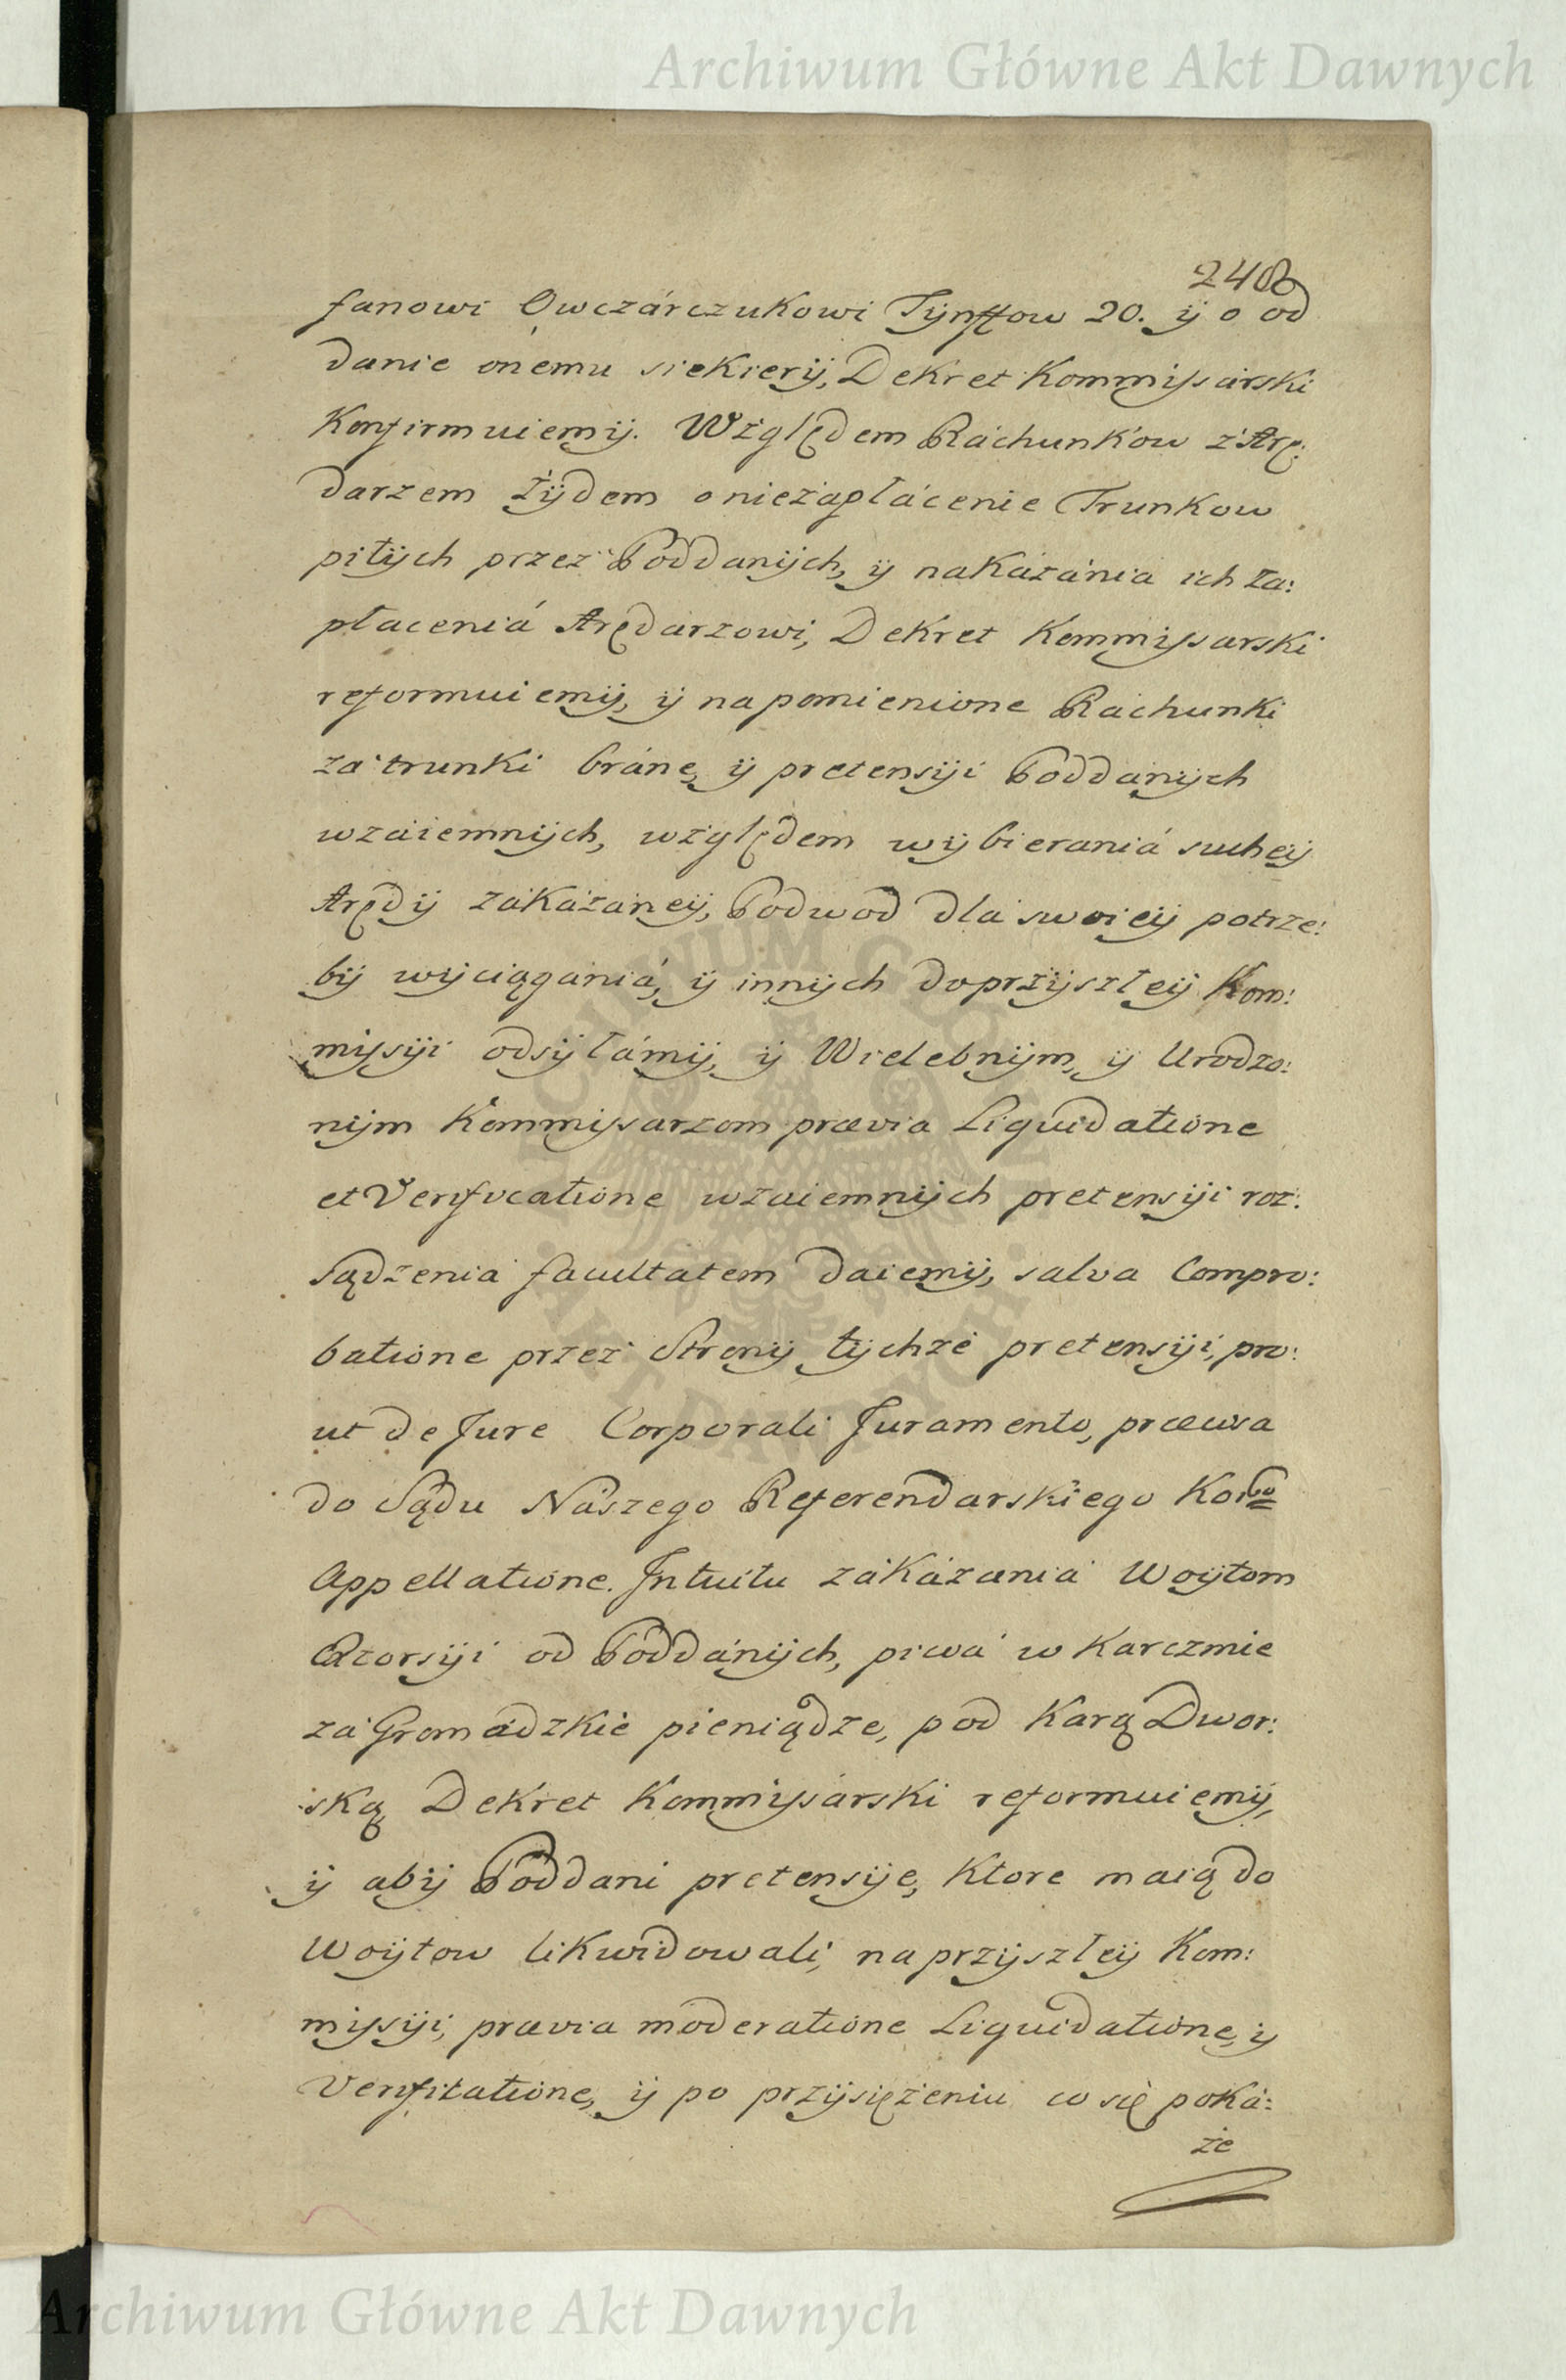 Archiwum Główne Akt Dawnych
248
fanowi Owczárczukowi Tÿnffow 20. ÿ o od
danie onemu siekierÿ, Dekret Kommissarski
Konfirmuiemÿ. Względem Ráchunkow z Arę:
darzem Żÿdem o niezapłácenie Trunkow
pitÿch przez Poddanÿch, ÿ nakázánia ich za:
płaceniá Arędarzowi, Dekret Kommissarski
reformuiemÿ, ÿ na pomienione Ráchunki
zá trunki bráne, ÿ pretensÿi Poddánÿch
wzáiemnÿch, względem wÿbierániá sucheÿ
Arędÿ zákázáneÿ, Podwod dlá swoieÿ potrze:
bÿ wÿciągániá, ÿ innÿch do przÿszłeÿ Kom:
missÿi odsÿłámÿ, ÿ Wielebnÿm, ÿ Urodzo:
nÿm Kommissarzom prævia Liquidatione
et Verificatione wzaiemnÿch pretensÿi roz:
sądzenia facultatem daiemÿ, salva Compro:
batione przez Stronÿ tÿchże pretensÿi, pro:
ut de Jure Corporali Juramento, prævia
do Sądu Nászego Referendarskiego Korgo
Appellatione. Intuitu zákázania Woÿtom
Extorsÿi od Poddánÿch, piwá w Karczmie
zá Gromádzkie pieniądze, pod Karą Dwor:
ską, Dekret Kommissárski reformuiemÿ,
ÿ abÿ Poddani pretensÿe, Ktore maią do
Woÿtow likwidowali, na przÿszłeÿ Kom:
missÿi, prævia moderatione Liquidatione, ÿ
Verifitatione, ÿ po przÿsiężeniu co się poká:
że
Archiwum Główne Akt Dawnych